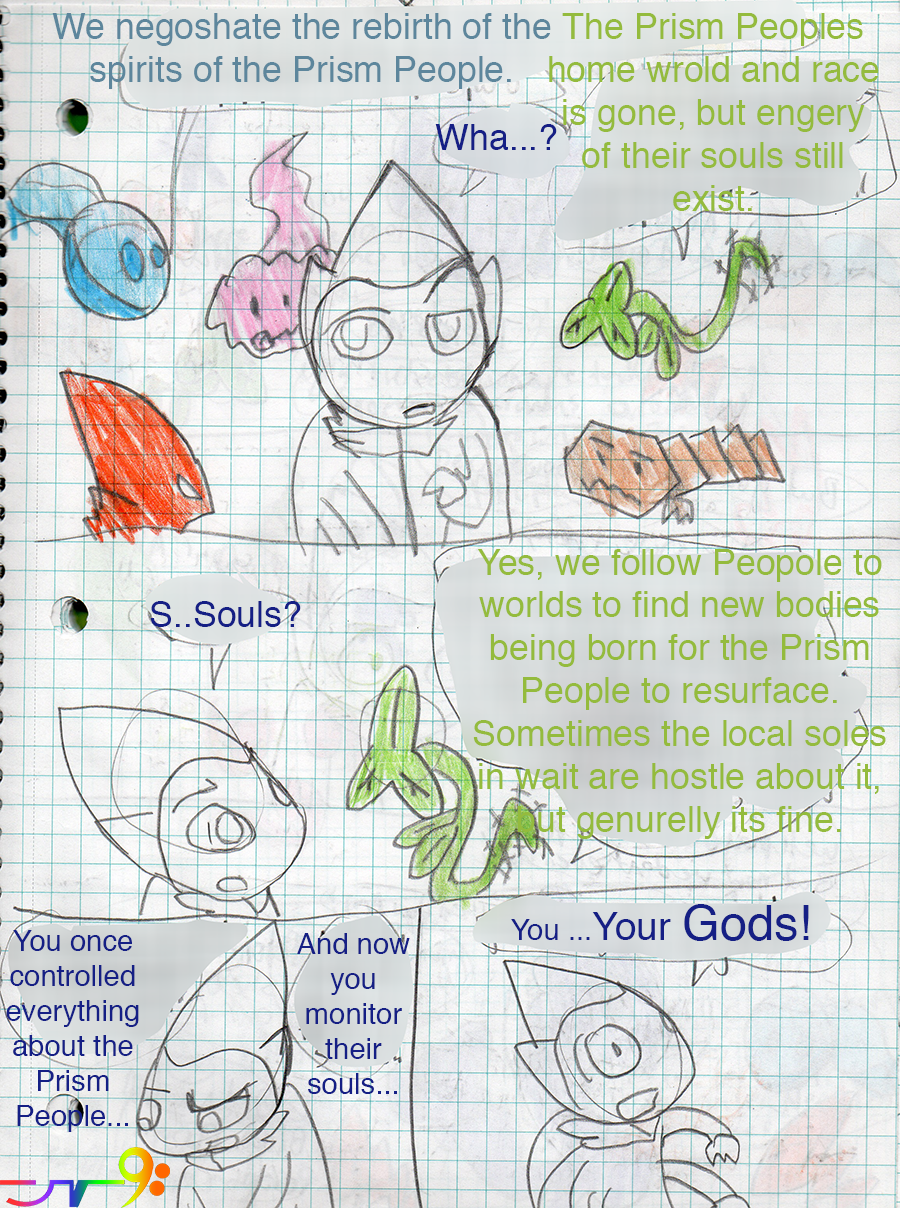 We negoshate the rebirth of the
spirits of the Prism People.
The Prism Peoples
home wrold and race
is gone, but engery
of their souls still
exist.
Wha...?
S..Souls?
Yes, we follow Peopole to
worlds to find new bodies
being born for the Prism
People to resurface.
Sometimes the local soles
in wait are hostle about it,
but genurelly its fine.
You once
controlled
everything
about the
Prism
People...
And now
you
monitor
their
souls...
You ...Your Gods!